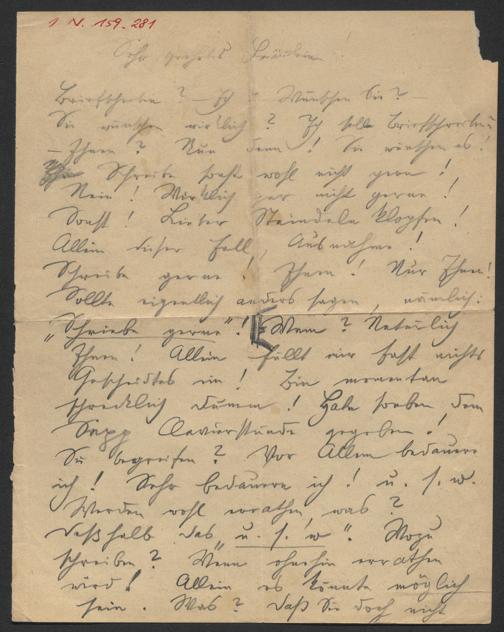 1 N. 159.281
Sehr geehrtes Fräulein
Briefschreiben? — Ich — Wünschen Sie? —
Sie wünschen wirklich? Ich soll Briefschreiben
— Ihnen? Nun denn! Sie wünschen es!
Schreibe sonst wohl nicht gern!
Nein! Wirklich gar nicht gerne!
Sonst! Lieber Steindeln klopfen!
Allein dieser Fall, Ausnahme!
Schreibe gerne! Ihnen! Nur Ihnen!
Sollte eigentlich anders sagen, nämlich:
„Schriebe gerne“! Wem? Natürlich
Ihnen! Allein fällt mir fast nichts
Gescheidtes ein! Bin momentan
schrecklich dumm! Habe soeben dem
Sepp Clavierstunde gegeben!
Sie begreifen? Vor Allem bedauere
ich! Sehr bedauere ich! u. s. w.
Werden wohl errathen, was?
Deßhalb das „u. s. w“. Wozu
schreiben? Wenn ohnehin errathen
wird! Allein es könnte möglich
sein. Was? Daß Sie doch nicht